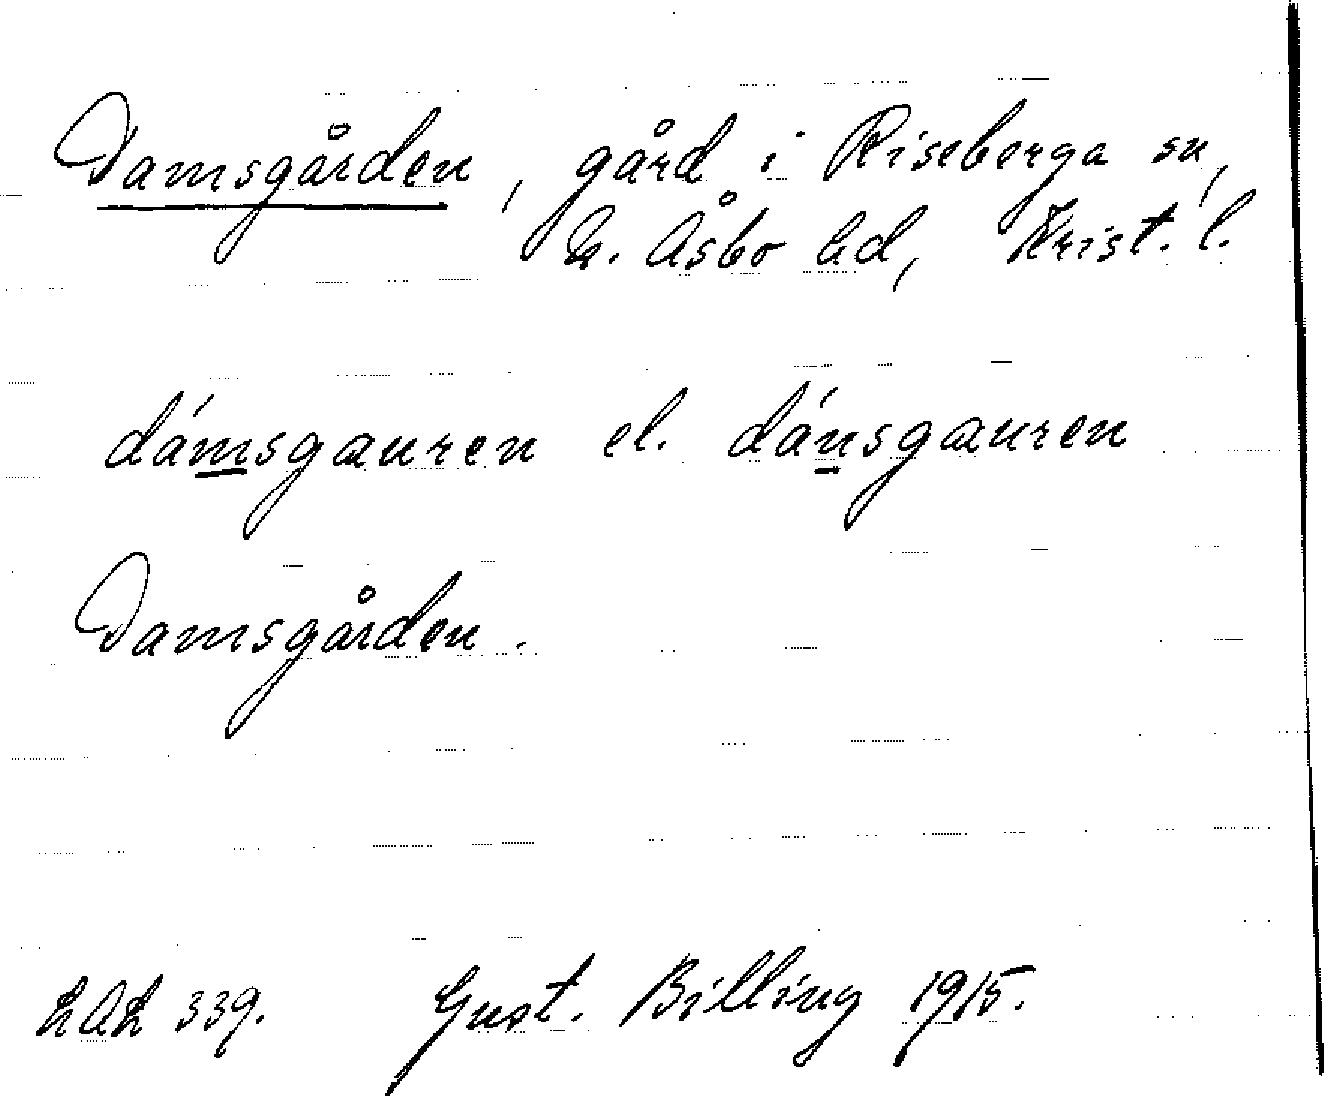 Damsgården, gård i Riseberga sn,
N. Åsbo hd, Krist. l.
dámsgauren el. dánsgauren
Damsgården.
LAL 339. Gust. Billing 1915.